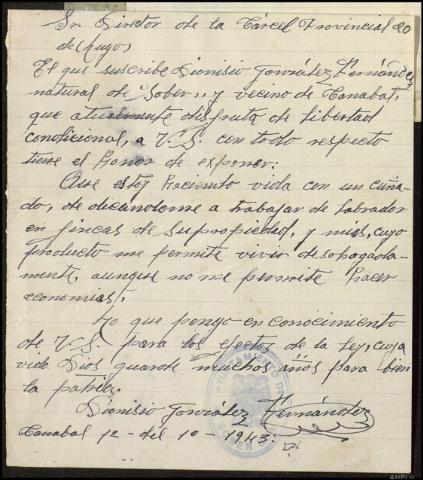 Sr Director de la Cárcel Provincial
de Lugo,
El que suscribe Dionisio González Fernández
natural de "Sober,, y vecino de Canabal,
que atualmente disfruto de libertad
condicional, a V.S. con todo respecto
tiene el honor de exponer:
Que estoy haciento vida con un cuña-
do, de dicandome a trabajar de labrador
en fincas de su propiedad, y mias, cuyo
producto me permite vivir desahogada-
mente, aunque no me permite hacer
economias.
Lo que pongo en conocimiento
de V.S. para los efectos de la ley, cuya
vida Dios guarde muchos años para bien
la patria.
Dionisio González Fernández
Canabal 1º - del 10 - 1943.
AYUNTAMIENTO DE
SOBER